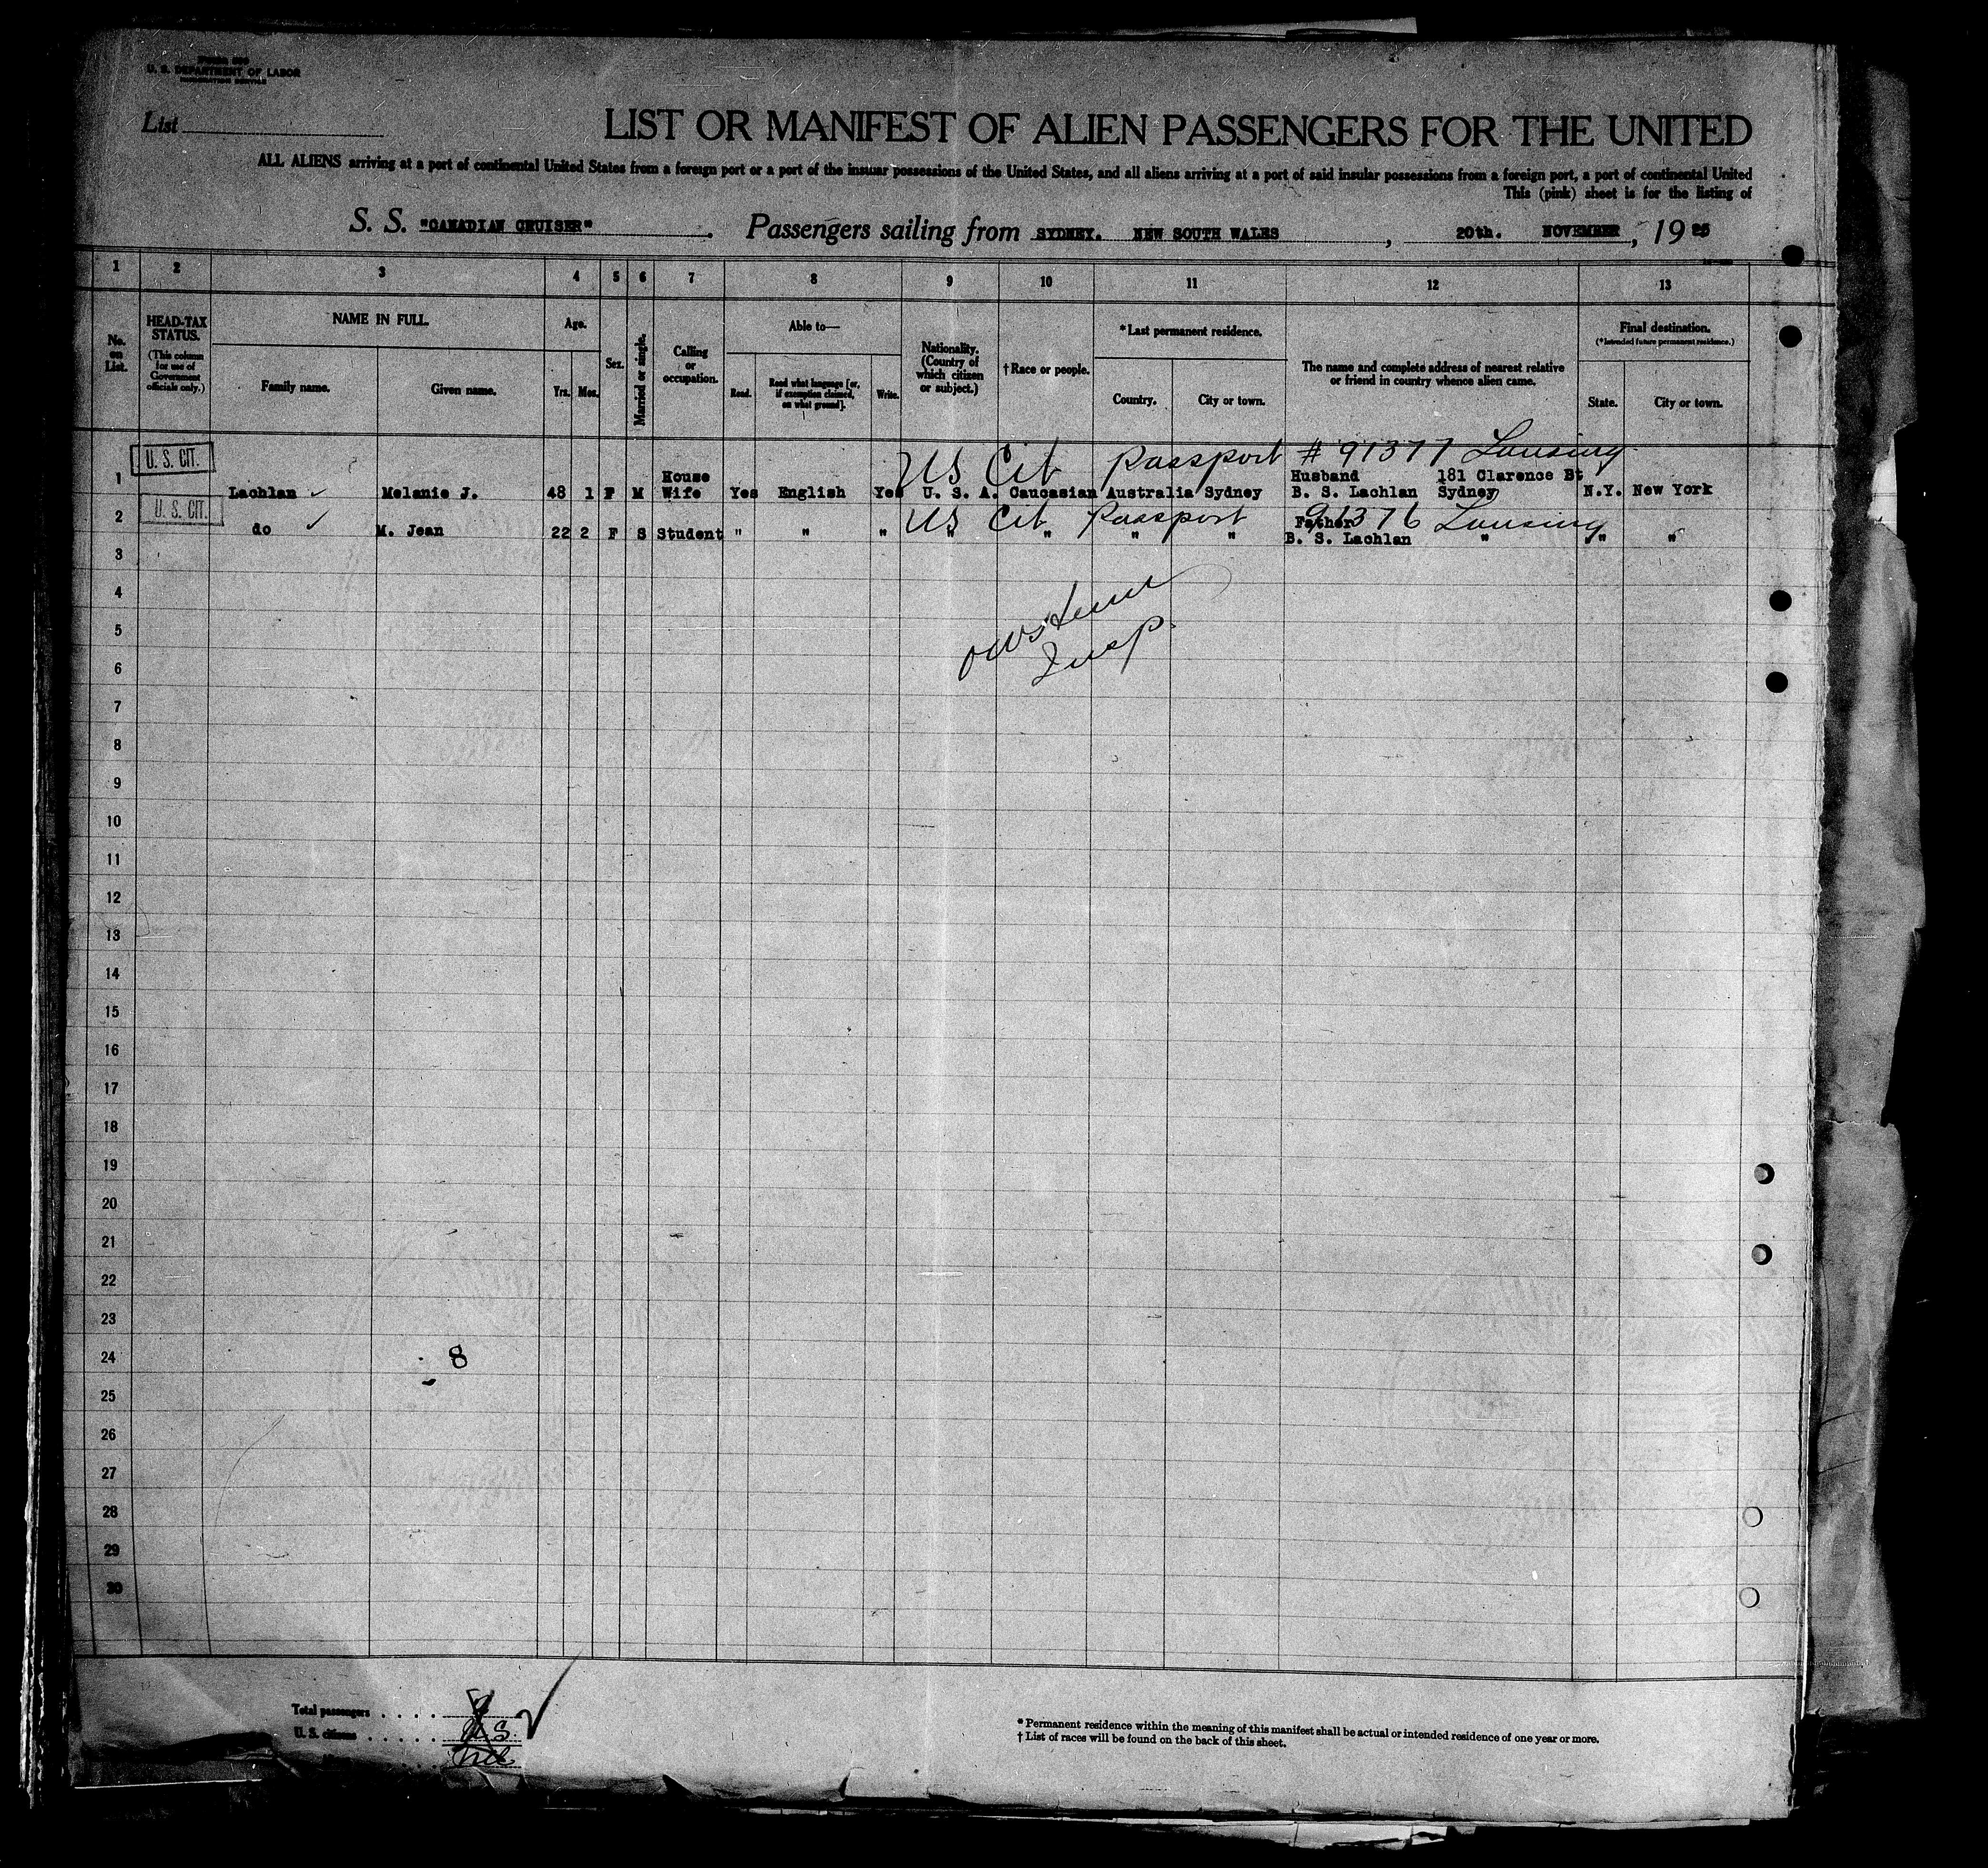 U. S. DEPARTMENT OF LABOR
IMMIGRATION SERVICE
List
LIST OR MANIFEST OF ALIEN PASSENGERS FOR THE UNITED
ALL ALIENS arriving at a port of continental United States from a foreign port or a port of the insular possessions of the United States, and all aliens arriving at a port of said insular possessions from a foreign port, a port of continental United
This (pink) sheet is for the listing of
S. S. "CANADIAN CRUISER" . Passengers sailing from SYDNEY. NEW SOUTH WALES , 20th. NOVEMBER , 19
1 2 3 4 5 6 7 8 9 10 11 12 13
No. on List.
HEAD-TAX STATUS.
(This column for use of Government officials only.)
NAME IN FULL.
Family name.
Given name.
Age.
Yrs. Mos.
Sex.
Married or single.
Calling or occupation.
Able to—
Read.
Read what language [or, if exemption claimed, on what ground].
Write.
Nationality. (Country of which citizen or subject.)
†Race or people.
*Last permanent residence.
Country.
City or town.
The name and complete address of nearest relative or friend in country whence alien came.
Final destination.
(*Intended future permanent residence.)
State.
City or town.
U. S. CIT. US Cit Passport # 91377 Lansing
House Husband 181 Clarence St
1 Lachlan ✓ Melanie J. 48 1 F M Wife Yes English Yes U. S. A. Caucasian Australia Sydney B. S. Lachlan Sydney N.Y. New York
U. S. CIT. US Cit Passport 91376 Lansing
Father
2 do ✓ M. Jean 22 2 F S Student " " " " " " " B. S. Lachlan " " "
3
4
5
Insp.
6
7
8
9
10
11
12
13
14
15
16
17
18
19
20
21
22
23
24 8
25
26
27
28
29
30
Total passengers
U. S. citizens U.S.
* Permanent residence within the meaning of this manifest shall be actual or intended residence of one year or more.
† List of races will be found on the back of this sheet.